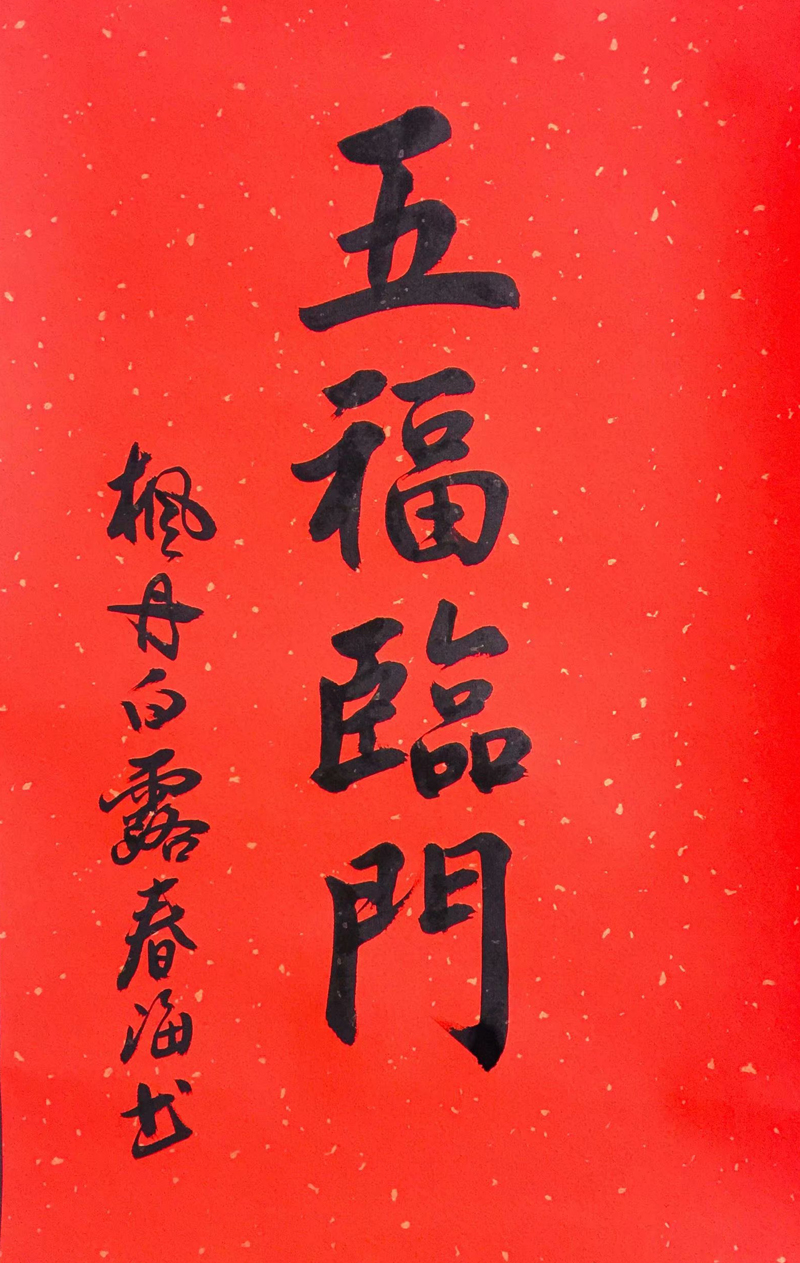 五福臨門
楓丹白露春海书